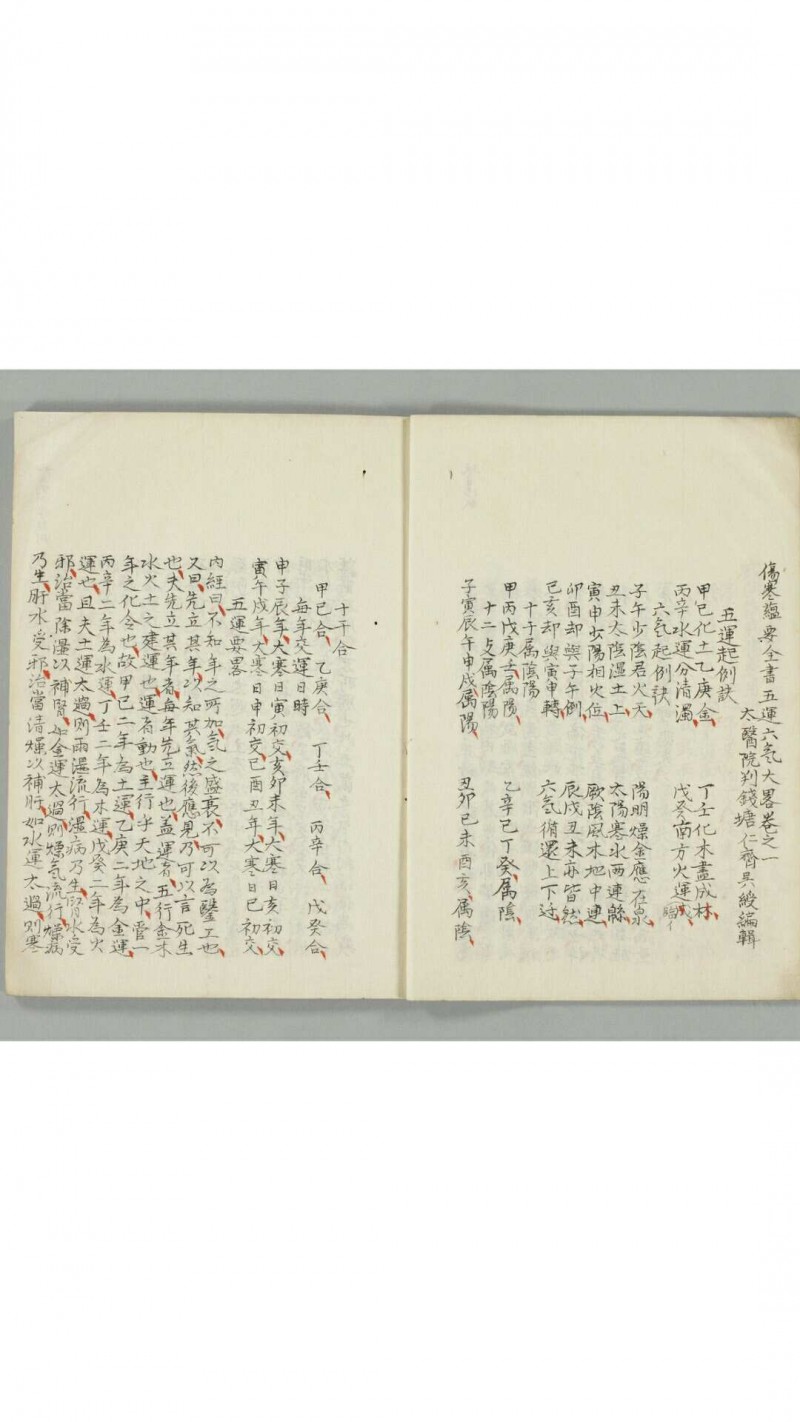 傷寒蘊要全書五運六氣大畧卷之一
太醫院判錢塘仁齋吳綬編輯
五運起例訣
甲巳化土乙庚金 丁壬化木盡成林
丙辛水運分清濁 戊癸南方火運
六氣起例訣
子午少陰君火天 陽明燥金應在泉
丑未太陰濕土上 太陽寒水兩連綿
寅申少陽相火位 厥陰風木地中連
卯酉却與子午倒 辰戌丑未亦皆然
巳亥却與寅申轉 六氣循還上下迁
十干属陰陽
甲丙戊庚壬属陽 乙辛己丁癸属陰
十二支属陰陽
子寅辰午申戌属陽 丑卯巳未酉亥属陰
十干合
甲巳合 乙庚合 丁壬合 丙辛合 戊癸合
每年交運日時
申子辰年大寒日寅初交亥卯未年大寒日亥初交
寅午戌年大寒日申初交巳酉丑年大寒日巳初交
五運要畧
內經曰不知年之所加氣之盛衰不可以為醫工也
又曰先立其年以知其氣然後應見乃可以言死生
也夫先立其年者每年先立運也盖運者五行金木
水火土之建運也運者動也主行乎天地之中管一
年之化令也故甲巳二年為土運乙庚二年為金運
丙辛二年為水運丁壬二年為木運戊癸二年為火
運也且夫土運太過則雨濕流行濕病乃生腎水受
邪治當除濕以補腎如金運太過則燥氣流行燥病
乃生肝木受邪治當清燥以補肝如水運太過則寒